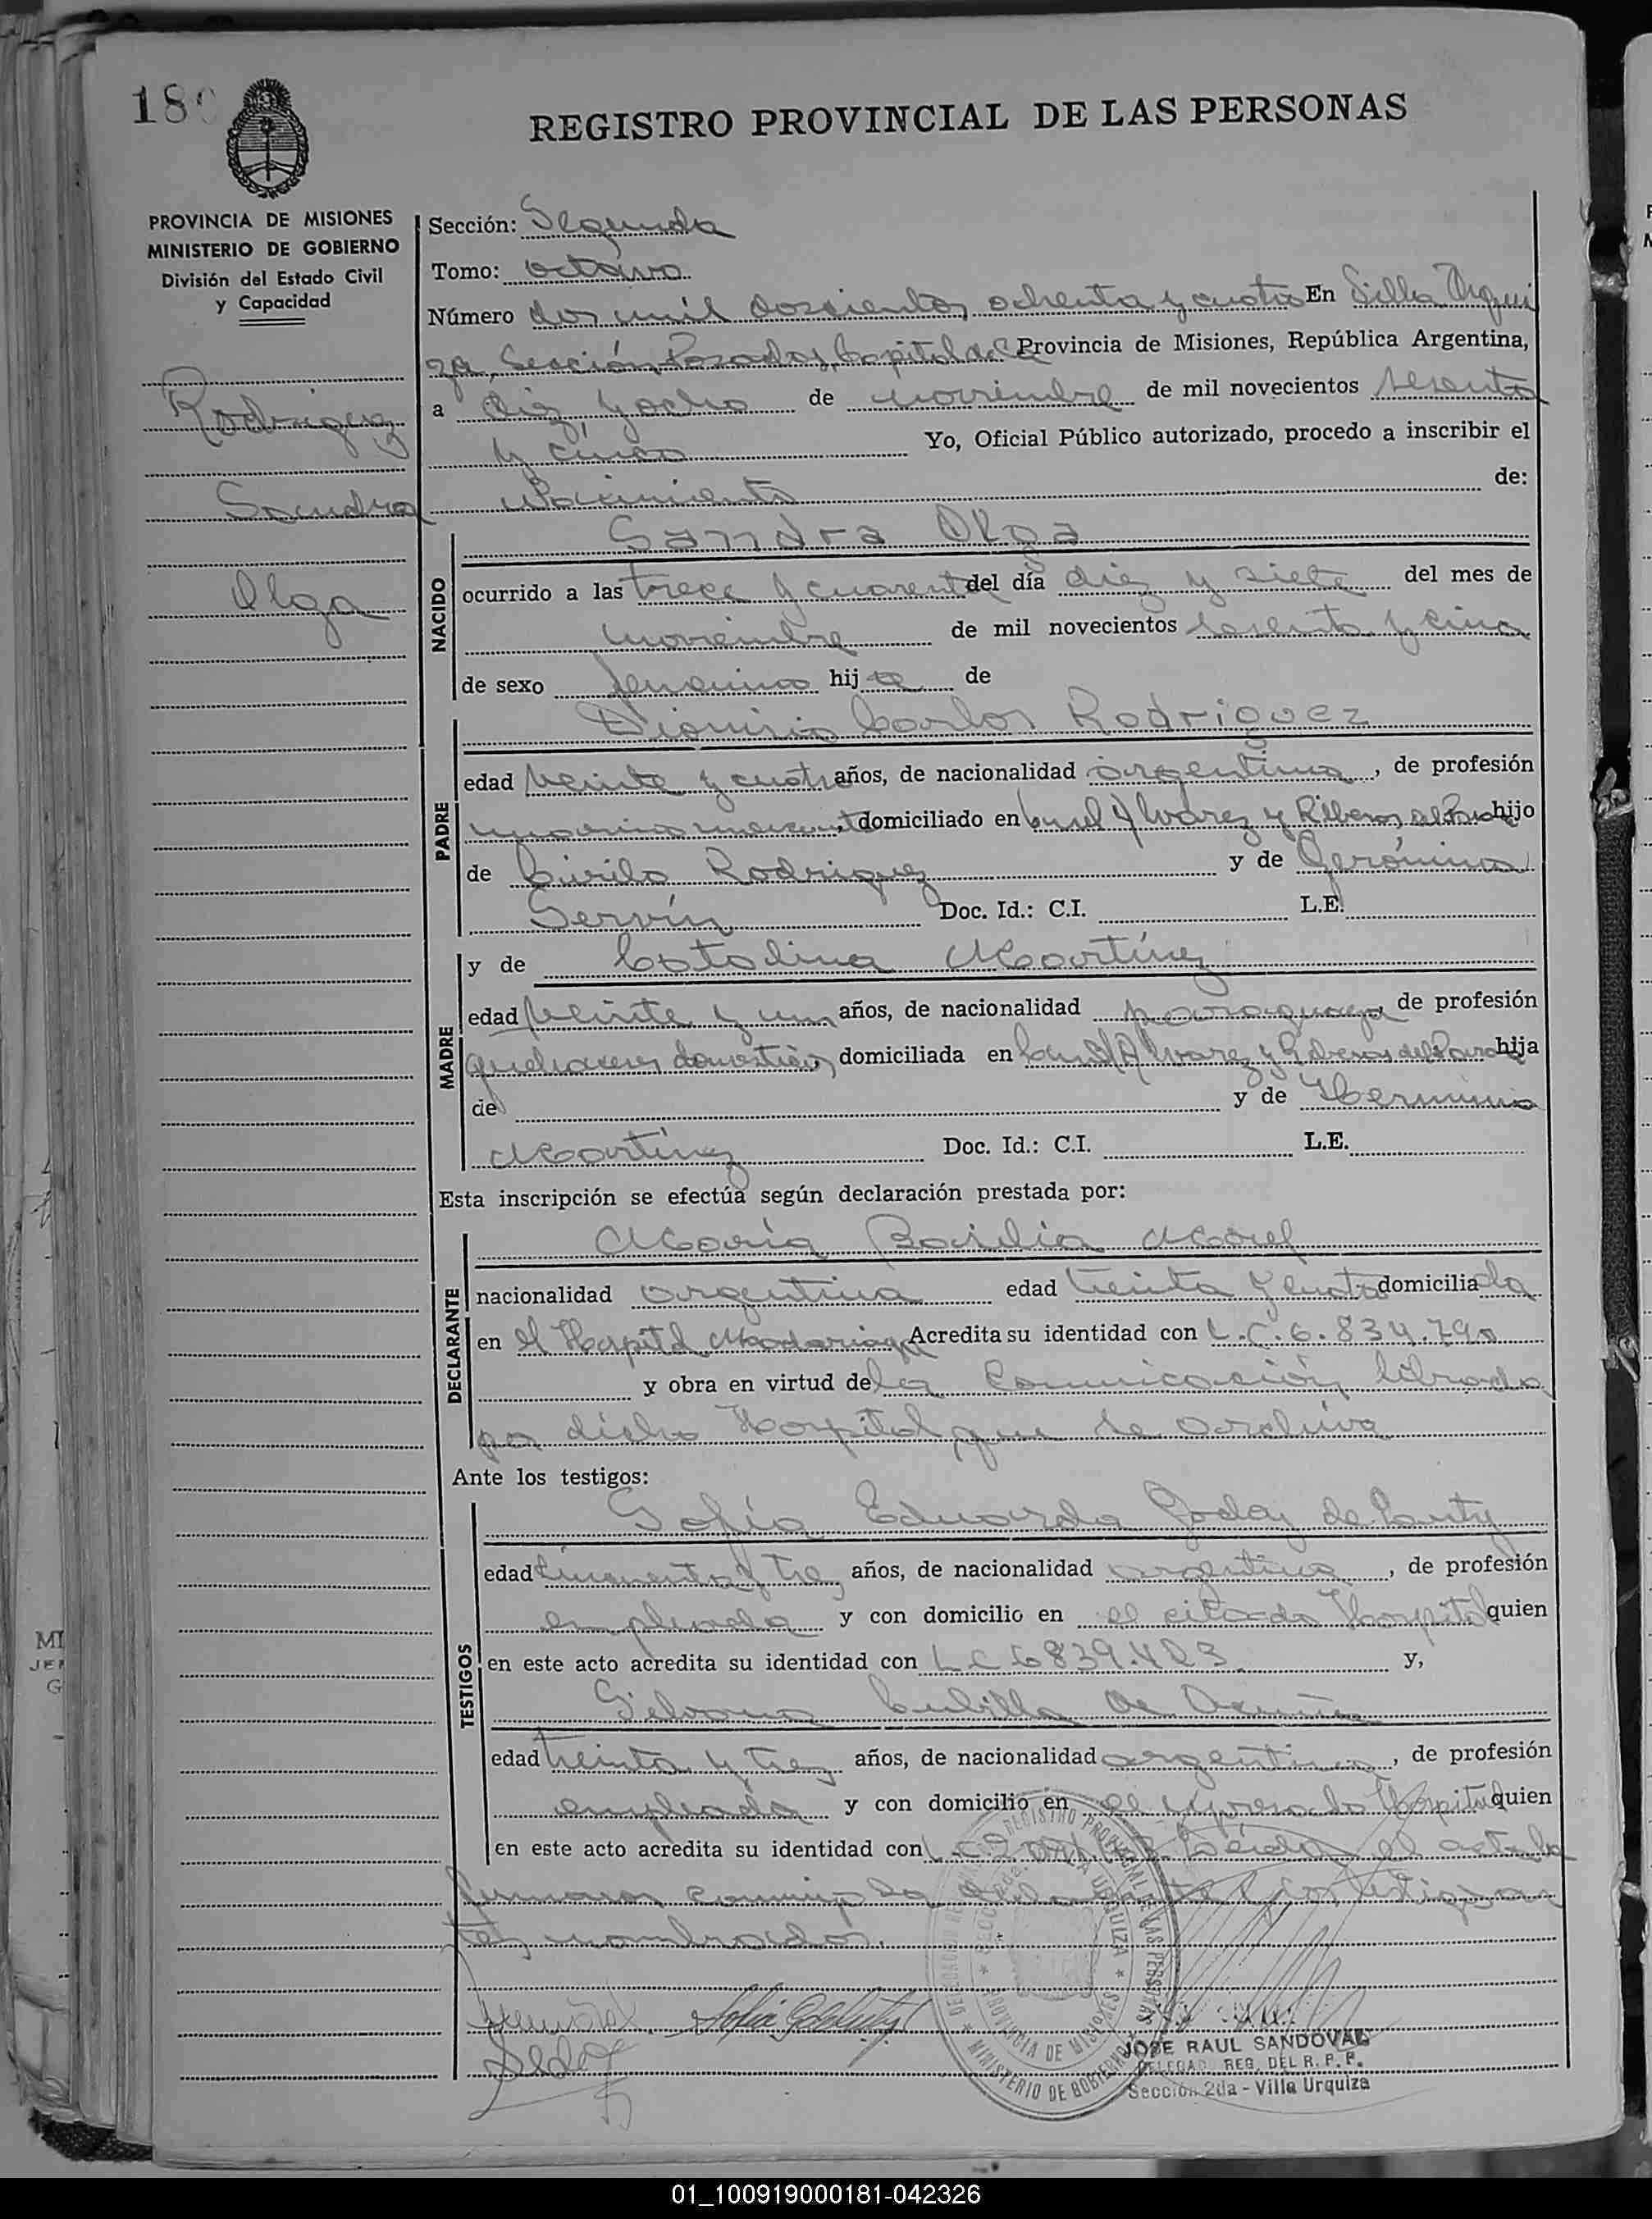 180
REGISTRO PROVINCIAL DE LAS PERSONAS
PROVINCIA DE MISIONES
MINISTERIO DE GOBIERNO
División del Estado Civil
y Capacidad
Rodriguez
Sandra
Olga
Sección: Segunda
Tomo: octavo
Número dos mil doscientos ochenta y cuatro En Villa Urqui
za, Sección Posadas, Capital de la Provincia de Misiones, República Argentina,
a diez y ocho de noviembre de mil novecientos sesenta
y cinco Yo, Oficial Público autorizado, procedo a inscribir el
Nacimiento de:
NACIDO
Sandra Olga
ocurrido a las trece y cuarenta del día diez y siete del mes de
noviembre de mil novecientos sesenta y cinco
de sexo femenino hija de
PADRE
Dionisio Carlos Rodriguez
edad veinte y cuatro años, de nacionalidad argentina, de profesión
domiciliado en Alvarez y hijo
de Cirilo Rodriguez y de Gerónima
Servín Doc. Id.: C.I. L.E.
MADRE
y de Catalina Martínez
edad veinte y un años, de nacionalidad paraguaya de profesión
quehaceres domésticos, domiciliada en Alvarez y hija
de y de Herminia
Martínez Doc. Id.: C.I. L.E.
Esta inscripción se efectúa según declaración prestada por:
DECLARANTE
María Basilia Morel
nacionalidad argentina edad treinta y cuatro domiciliada
en el Hospital Madariaga Acredita su identidad con L.C. 6.834.790
y obra en virtud de la Comunicación librada
por dicho Hospital, que se archiva
Ante los testigos:
TESTIGOS
Sofía Eduarda Godoy de
edad cincuenta y tres años, de nacionalidad argentina, de profesión
empleada y con domicilio en el citado Hospital quien
en este acto acredita su identidad con L C 6839.423 y,
Silvana Cubilla de Acuña
edad treinta y tres años, de nacionalidad argentina, de profesión
empleada y con domicilio en el expresado Hospital quien
en este acto acredita su identidad con L.C. Leída el acta la
firmaron conmigo la declarante y los testigos an
tes nombrados.
REGISTRO PROVINCIAL DE LAS PERSONAS
MINISTERIO DE GOBIERNO
PROVINCIA DE MISIONES
JOSE RAUL SANDOVAL
DELEGAD. REG. DEL R. P. P.
Sección 2da - Villa Urquiza
01_100919000181-042326